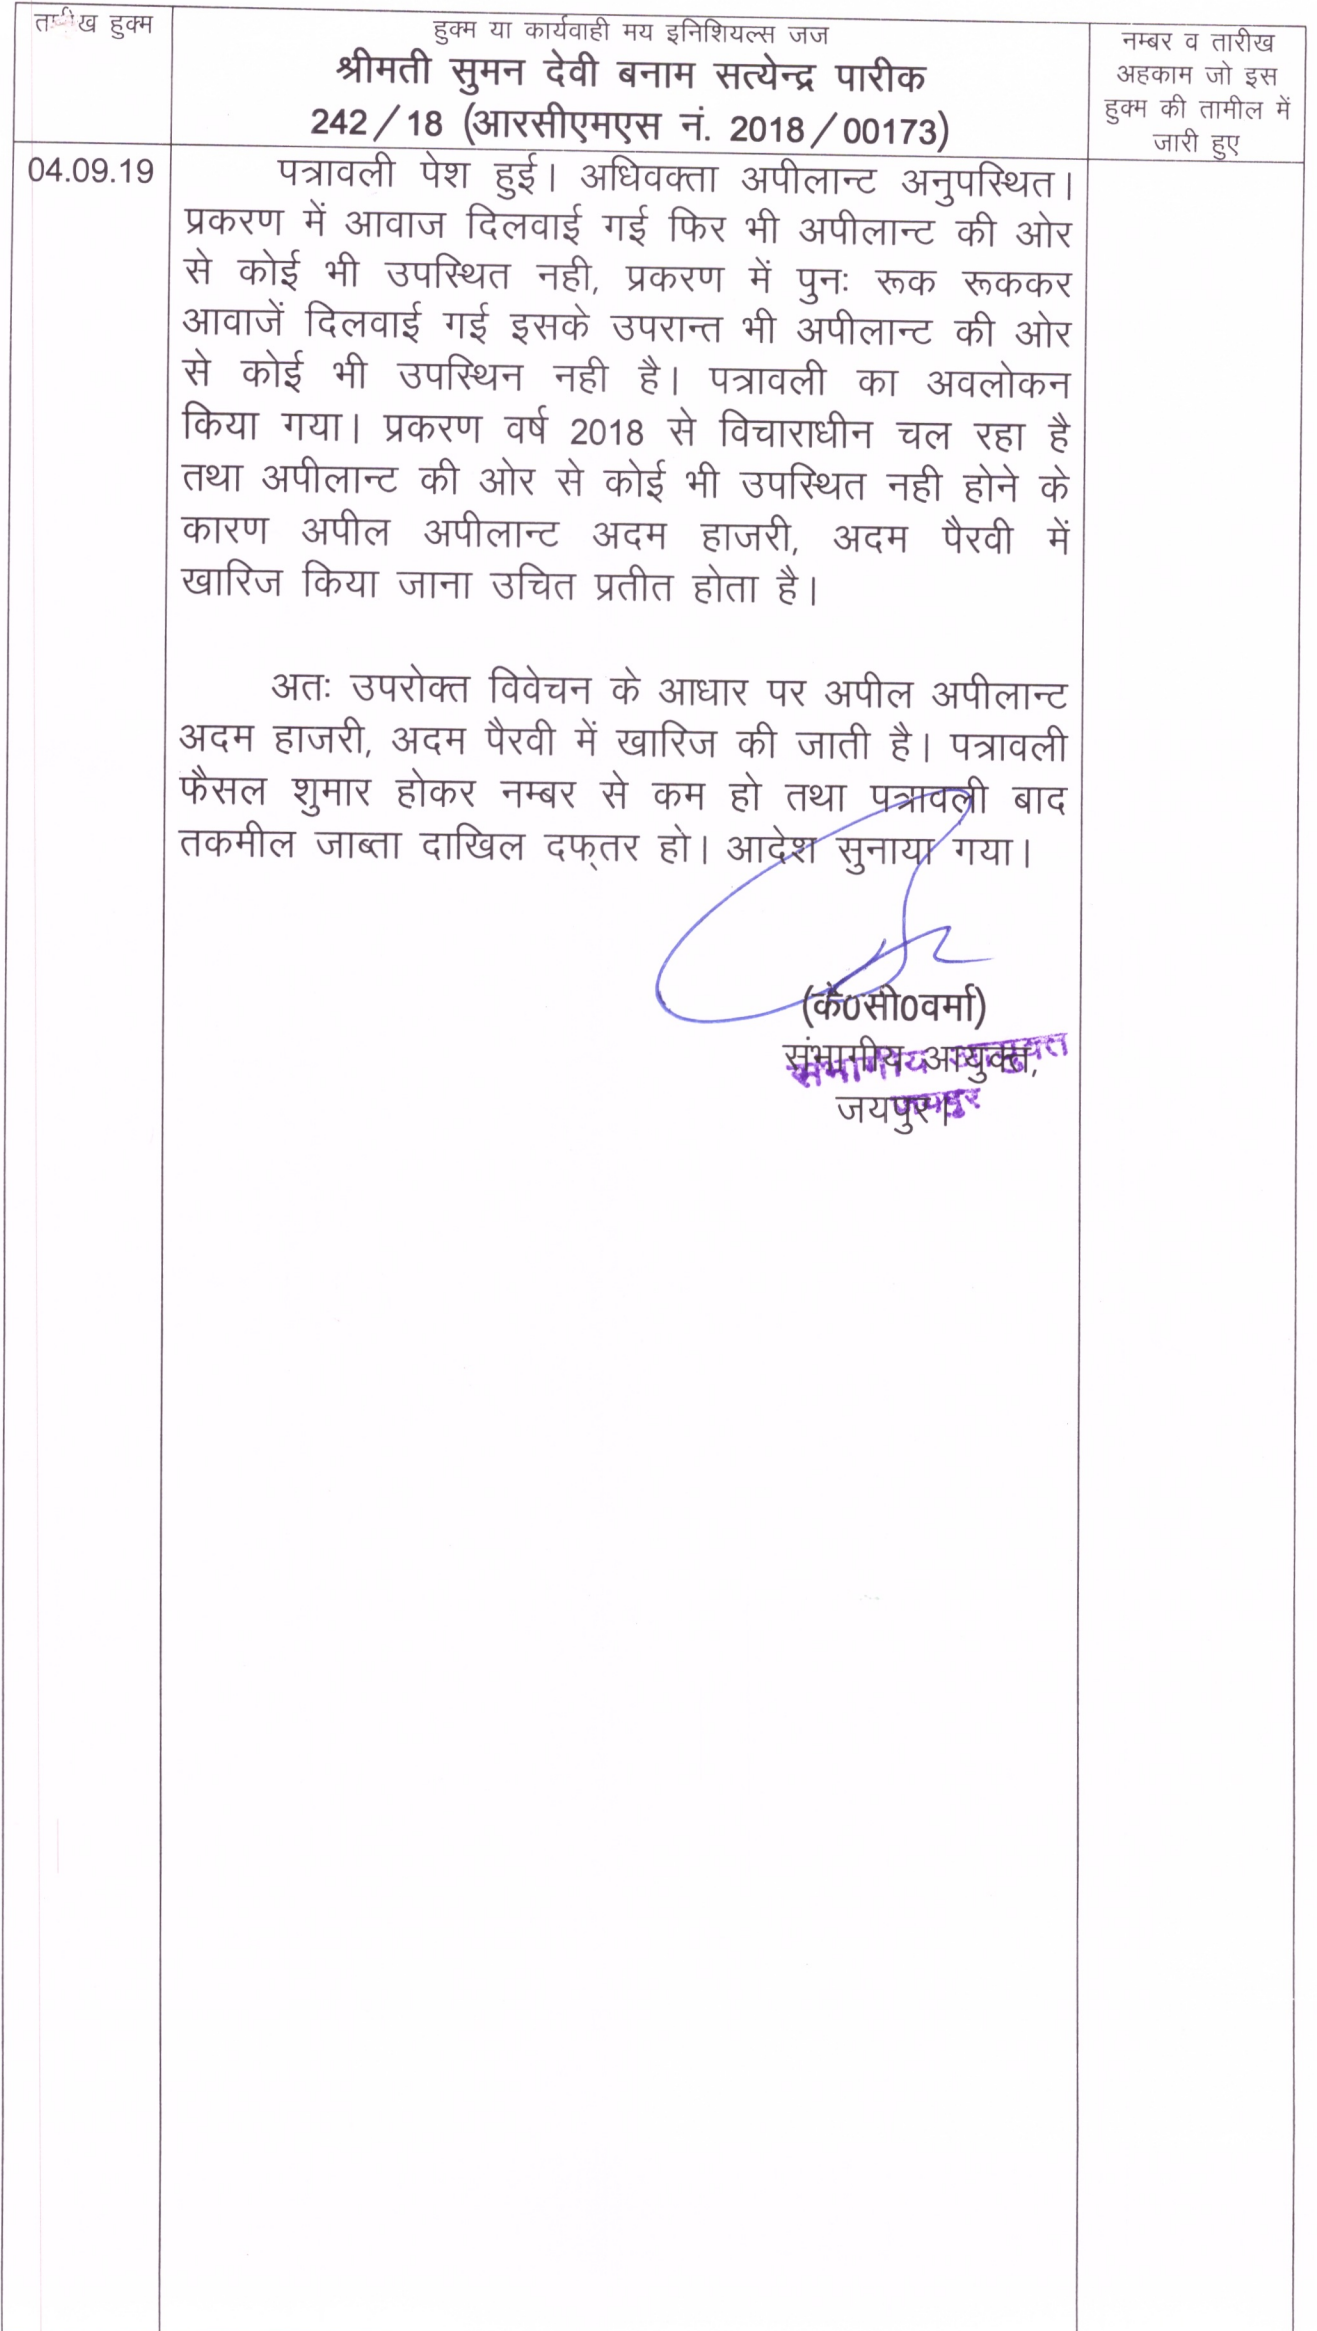 तारीख हुक्म
हुक्म या कार्यवाही मय इनिशियल्स जज
श्रीमती सुमन देवी बनाम सत्येन्द्र पारीक
242/18 (आरसीएमएस नं. 2018/00173)
नम्बर व तारीख
अहकाम जो इस
हुक्म की तामील में
जारी हुए
04.09.19
पत्रावली पेश हुई। अधिवक्ता अपीलान्ट अनुपस्थित।
प्रकरण में आवाज दिलवाई गई फिर भी अपीलान्ट की ओर
से कोई भी उपस्थित नही, प्रकरण में पुनः रूक रूककर
आवाजें दिलवाई गई इसके उपरान्त भी अपीलान्ट की ओर
से कोई भी उपस्थिन नही है। पत्रावली का अवलोकन
किया गया। प्रकरण वर्ष 2018 से विचाराधीन चल रहा है
तथा अपीलान्ट की ओर से कोई भी उपस्थित नही होने के
कारण अपील अपीलान्ट अदम हाजरी, अदम पैरवी में
खारिज किया जाना उचित प्रतीत होता है।
अतः उपरोक्त विवेचन के आधार पर अपील अपीलान्ट
अदम हाजरी, अदम पैरवी में खारिज की जाती है। पत्रावली
फैसल शुमार होकर नम्बर से कम हो तथा पत्रावली बाद
तकमील जाब्ता दाखिल दफ्तर हो। आदेश सुनाया गया।
(के0सी0वर्मा)
संभागीय आयुक्त,
संभागीय आयुक्त
जयपुर।
जयपुर